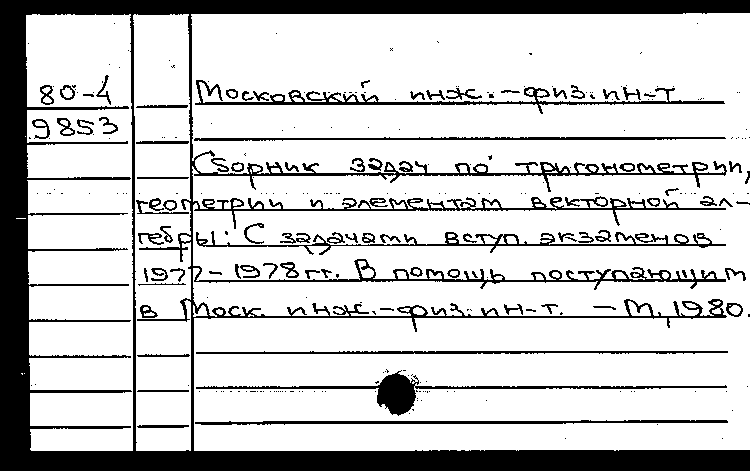 80-4 Московский инж.-физ. ин-т
9853
Сборник задач по тригонометрии,
геометрии и элементам векторной ал-
гебры: С задачами вступ. экзаменов
1977-1978 гг. В помощь поступающим
в Моск. инж.-физ. ин-т. - М., 1980.